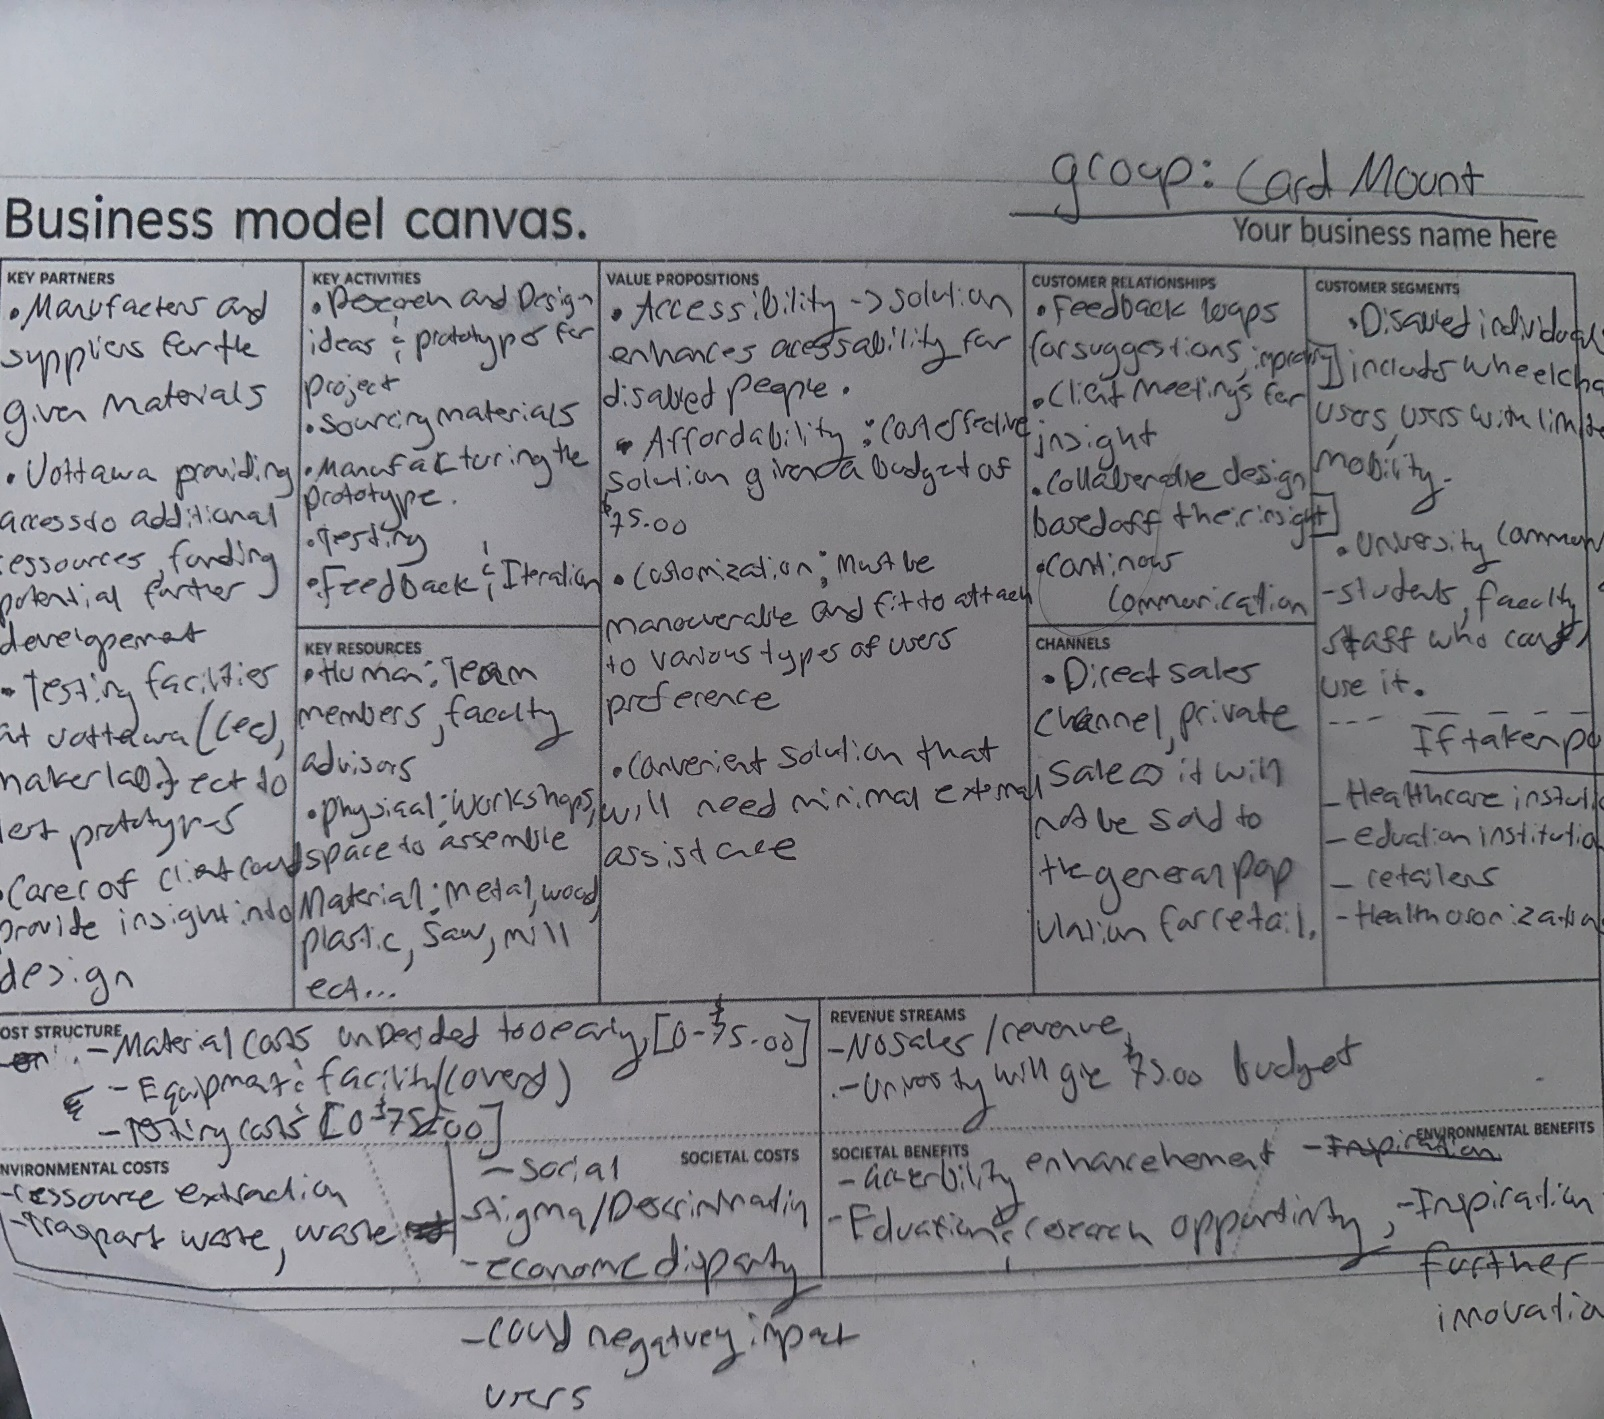 group: Card Mount
Business model canvas.
Your business name here
KEY PARTNERS
• Manufacters and
suppliers for the
given Materials
• Uottawa providing
access to additional
ressources, funding
potential further
developement
• Testing facilities
at uottawa (Ceed,
makerlab) ect to
test prototypes
• Carer of client could
provide insight into
design
KEY ACTIVITIES
• Research and Design
ideas & prototypes for
project
• Sourcing materials
• Manufacturing the
prototype.
• Testing
• Feedback & Iteration
KEY RESOURCES
• Human: Team
members, faculty
advisors
• Physical: workshops,
space to assemble
Material: metal, wood,
plastic, Saw, mill
ect...
VALUE PROPOSITIONS
• Accessibility -> solution
enhances acessability for
disabled people.
• Affordability: Cost effective
solution given a budget of
$75.00
• Costomization; Must be
manouverable and fit to attach
to various types of users
preference
• Convenient solution that
will need minimal external
assistance
CUSTOMER RELATIONSHIPS
• Feedback loops
for suggestions,
• Client Meetings for
insight
• Collaberative design
based off their insight
• Continous
Communication
CHANNELS
• Direct sales
channel, private
sale it will
not be sold to
the general pop
ulation for retail.
CUSTOMER SEGMENTS
• Disabled individual
includs wheelcha
users, users with limite
mobility.
• University Commun
- students, faculty,
staff who can
use it.
If taken
- Healthcare instit
- eduction institutio
- retailers
- Health
OST STRUCTURE
- Material Costs unDecided too early, [0-$75.00]
- Equipment & facility (coverd)
- Testing costs [0-$75.00]
REVENUE STREAMS
- No sales/revenue,
- Univrsty will give $75.00 budget
NVIRONMENTAL COSTS
- ressource extraction
- Trasport waste, waste
SOCIETAL COSTS
- Social
stigma/Descrimination
- economic disparity
- Could negatvey impact
users
SOCIETAL BENEFITS
- enhancehement
- Eduation & research opportinity,
ENVIRONMENTAL BENEFITS
- Inspiration
- Inspiration
further
inovatio